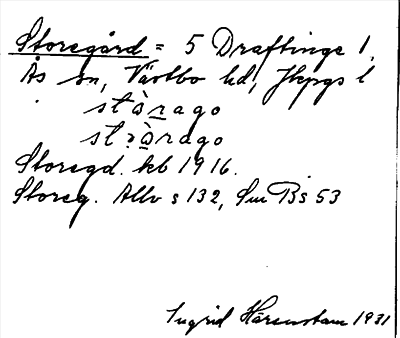 Storegård = 5 Draftinge 1.
Ås sn, Västbo hd, Jkpgs l
stòrago
stꜿ̀rago
Storegd. kb 1916.
Storeg. Allv s 132, Sm Bs 53
Ingrid Härenstam 1931